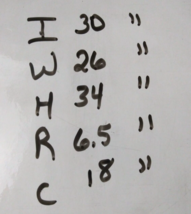 I 30 "
W 26 "
H 34 "
R 6.5 "
C 18 "